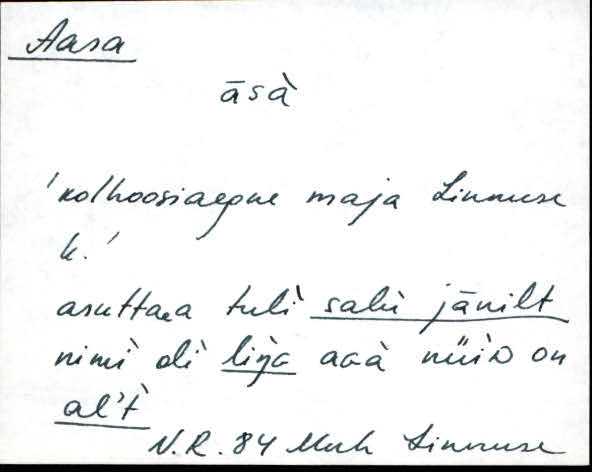 Aasa
āsà
'kolhoosiaegne maja Linnuse
k.'
asuttaᴅa tulì salù jānilt
nimì olì liŋ̀ɢ aɢà nüiᴅ on
al't̀
N.R. 84 Muh Linnuse